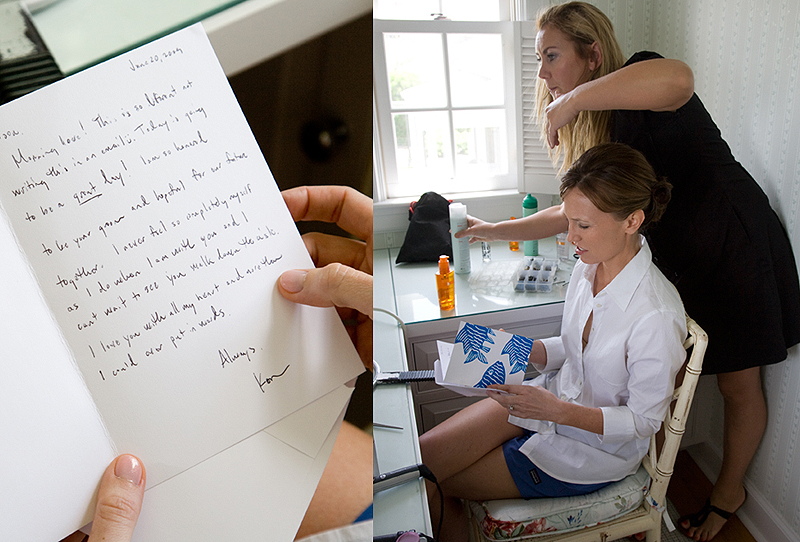 June 20, 2009
Morning Love! This is so different not
writing this in an email :). Today is going
to be a great day! I am so honored
to be your groom and hopeful for our future
together. I never feel so completely myself
as I do when I am with you and I
can't wait to see you walk down the aisle.
I love you with all my heart and more than
I could ever put in words.
Always.